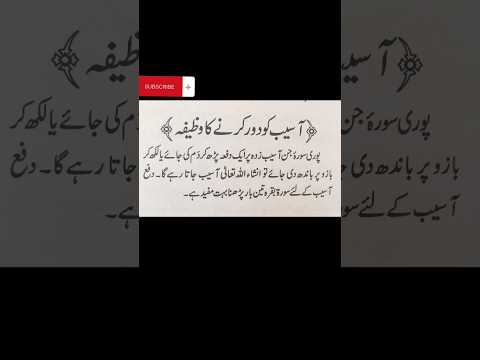 SUBSCRIBE
آسیب کو دور کرنے کا وظیفہ
پوری سورۂ جن آسیب زدہ پر ایک دفعہ پڑھ کر دَم کی جائے یا لکھ کر
بازو پر باندھ دی جائے تو انشاء اللہ تعالٰی آسیب جاتا رہے گا۔ دفع
آسیب کے لئے سورۃ بقرہ تین بار پڑھنا بہت مفید ہے۔